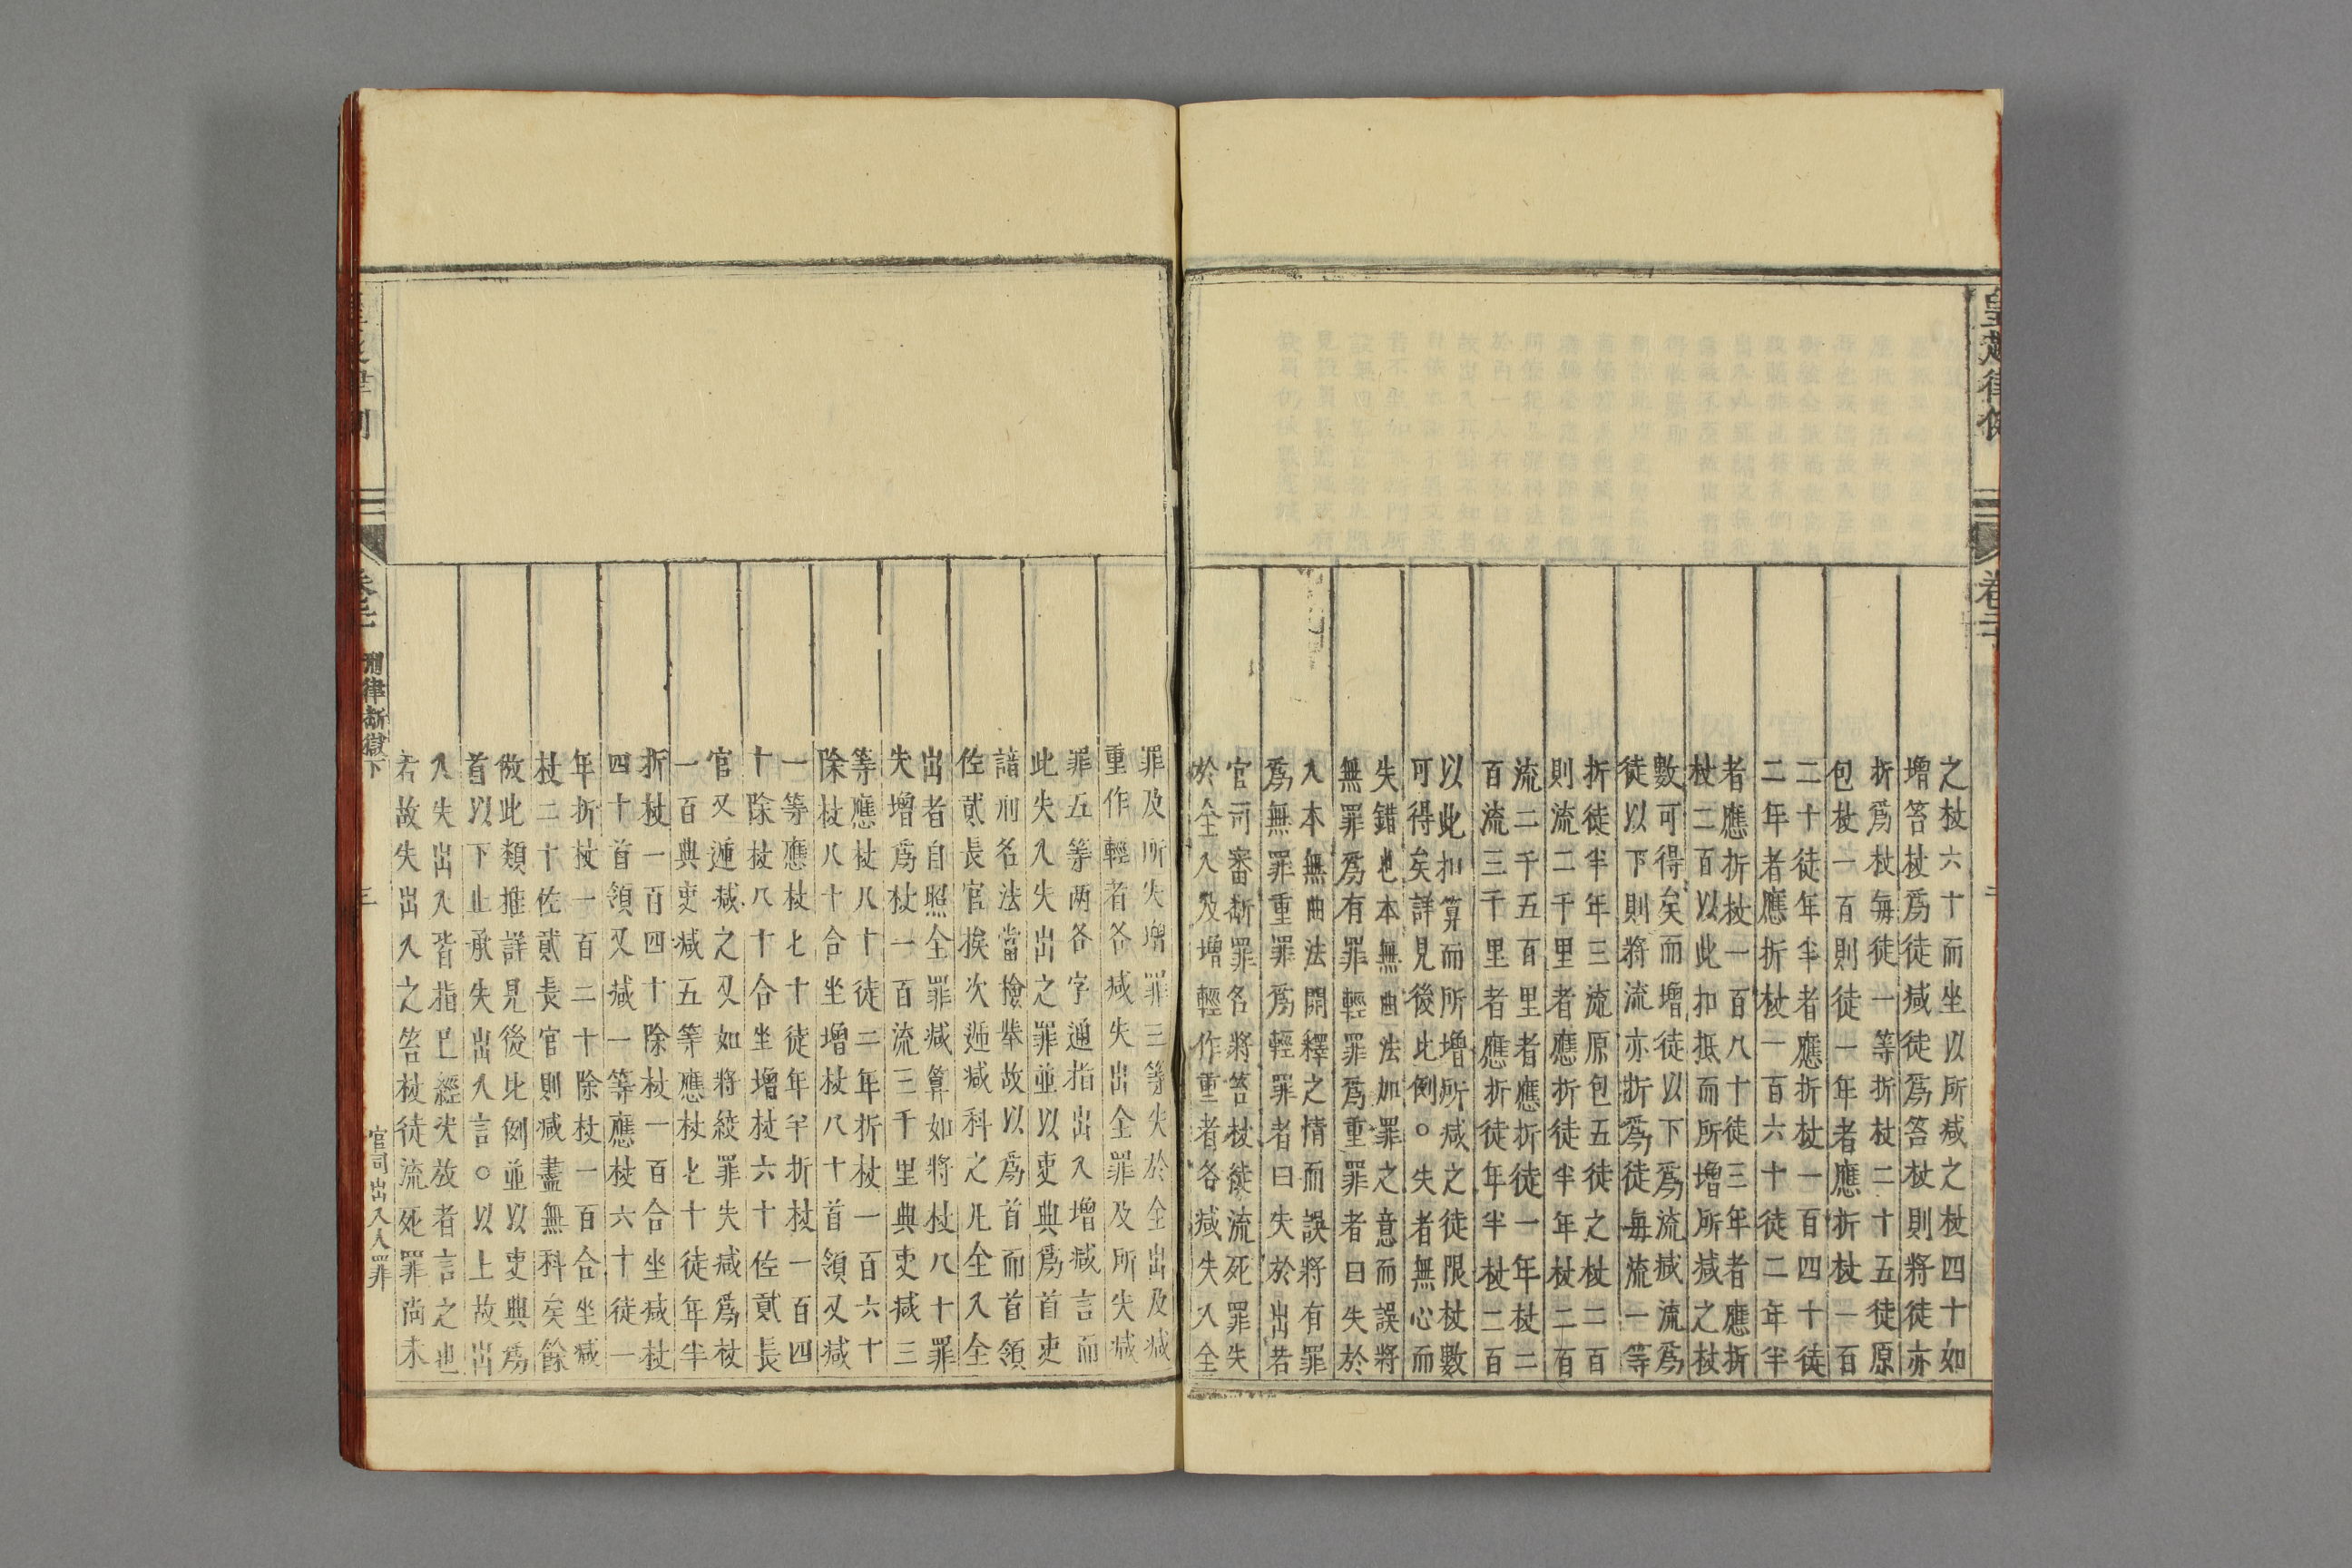 皇越律例
卷二十
之杖六十而坐以所减之杖四十如
增笞杖爲徒减徒爲笞杖則將徒亦
折爲杖每徒一等折杖二十五徒原
包杖一百則徒一年者應折杖一百
二十徒年半者應折杖一百四十徒
二年者應折杖一百六十徒二年半
者應折杖一百八十徒三年者應折
杖二百以此扣抵而所增所减之杖
數可得矣而增徒以下爲流减流爲
徒以下則將流亦折爲徒每流一等
折徒半年三流原包五徒之杖二百
則流二千里者應折徒半年杖二百
流二千五百里者應折徒一年杖二
百流三千里者應折徒年半杖二百
以此扣算而所增所减之徒限杖數
可得矣詳見後比例○失者無心而
失錯也本無曲法加罪之意而誤將
無罪爲有罪輕罪爲重罪者曰失於
入本無曲法開釋之情而誤將有罪
爲無罪重罪爲輕罪者曰失於出若
官司審斷罪名將笞杖徒流死罪失
於全入及增輕作重者各减失入全
罪及所失增罪三等失於全出及减
重作輕者各减失出全罪及所失减
罪五等兩各字通指出入增减言而
此失入失出之罪並以吏典爲首吏
諳刑名法當撿舉故以爲首而首領
佐貳長官挨次遞减科之凡全入全
出者自照全罪减算如將杖八十罪
失增爲杖一百流三千里典吏减三
等應杖八十徒二年折杖一百六十
除杖八十合坐增杖八十首領又减
一等應杖七十徒年半折杖一百四
十除杖八十合坐增杖六十佐貳長
官又遞减之又如將絞罪失减爲杖
一百典吏减五等應杖七十徒年半
折杖一百四十除杖一百合坐减杖
四十首領又减一等應杖六十徒一
年折杖一百二十除杖一百合坐减
杖二十佐貳長官則减盡無科矣餘
倣此類推詳見後比例並以吏典爲
首以下止承失出入言○以上故出
入失出入皆指已經决放者言之也
若故失出入之笞杖徒流死罪尚未
刑律斷獄下
三
官司出入人罪